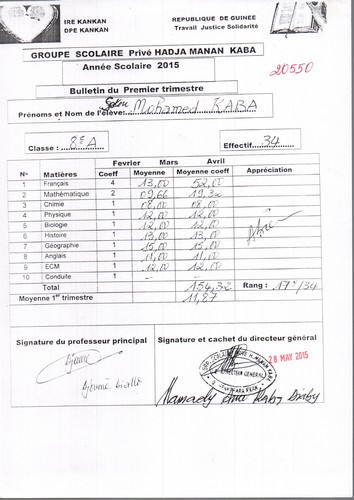 IRE KANKAN
DPE KANKAN
REPUBLIQUE DE GUINEE
Travail Justice Solidarité
GROUPE SCOLAIRE Privé HADJA MANAN KABA
Année Scolaire 2015
20550
Bulletin du Premier trimestre
Prénoms et Nom de l'élève: Mohamed KABA
Classe : 8e A Effectif 34
Fevrier Mars Avril
N° Matières Coeff Moyenne Moyenne coeff Appréciation
1 Français 4 13,00 52,00
2 Mathématique 2 09,66 19,32
3 Chimie 1 08,00 08,00
4 Physique 1 12,00 12,00
5 Biologie 1 12,00 12,00
6 Histoire 1 13,00 13,00
7 Géographie 1 15,00 15,00
8 Anglais 1 11,00 11,00
9 ECM 1 12,00 12,00
10 Conduite 1 – –
Total 154,32 Rang : 17e/34
Moyenne 1er trimestre 11,87
Signature du professeur principal
Signature et cachet du directeur général
28 MAY 2015
DIRECTEUR GENERAL
Mamady Kaba